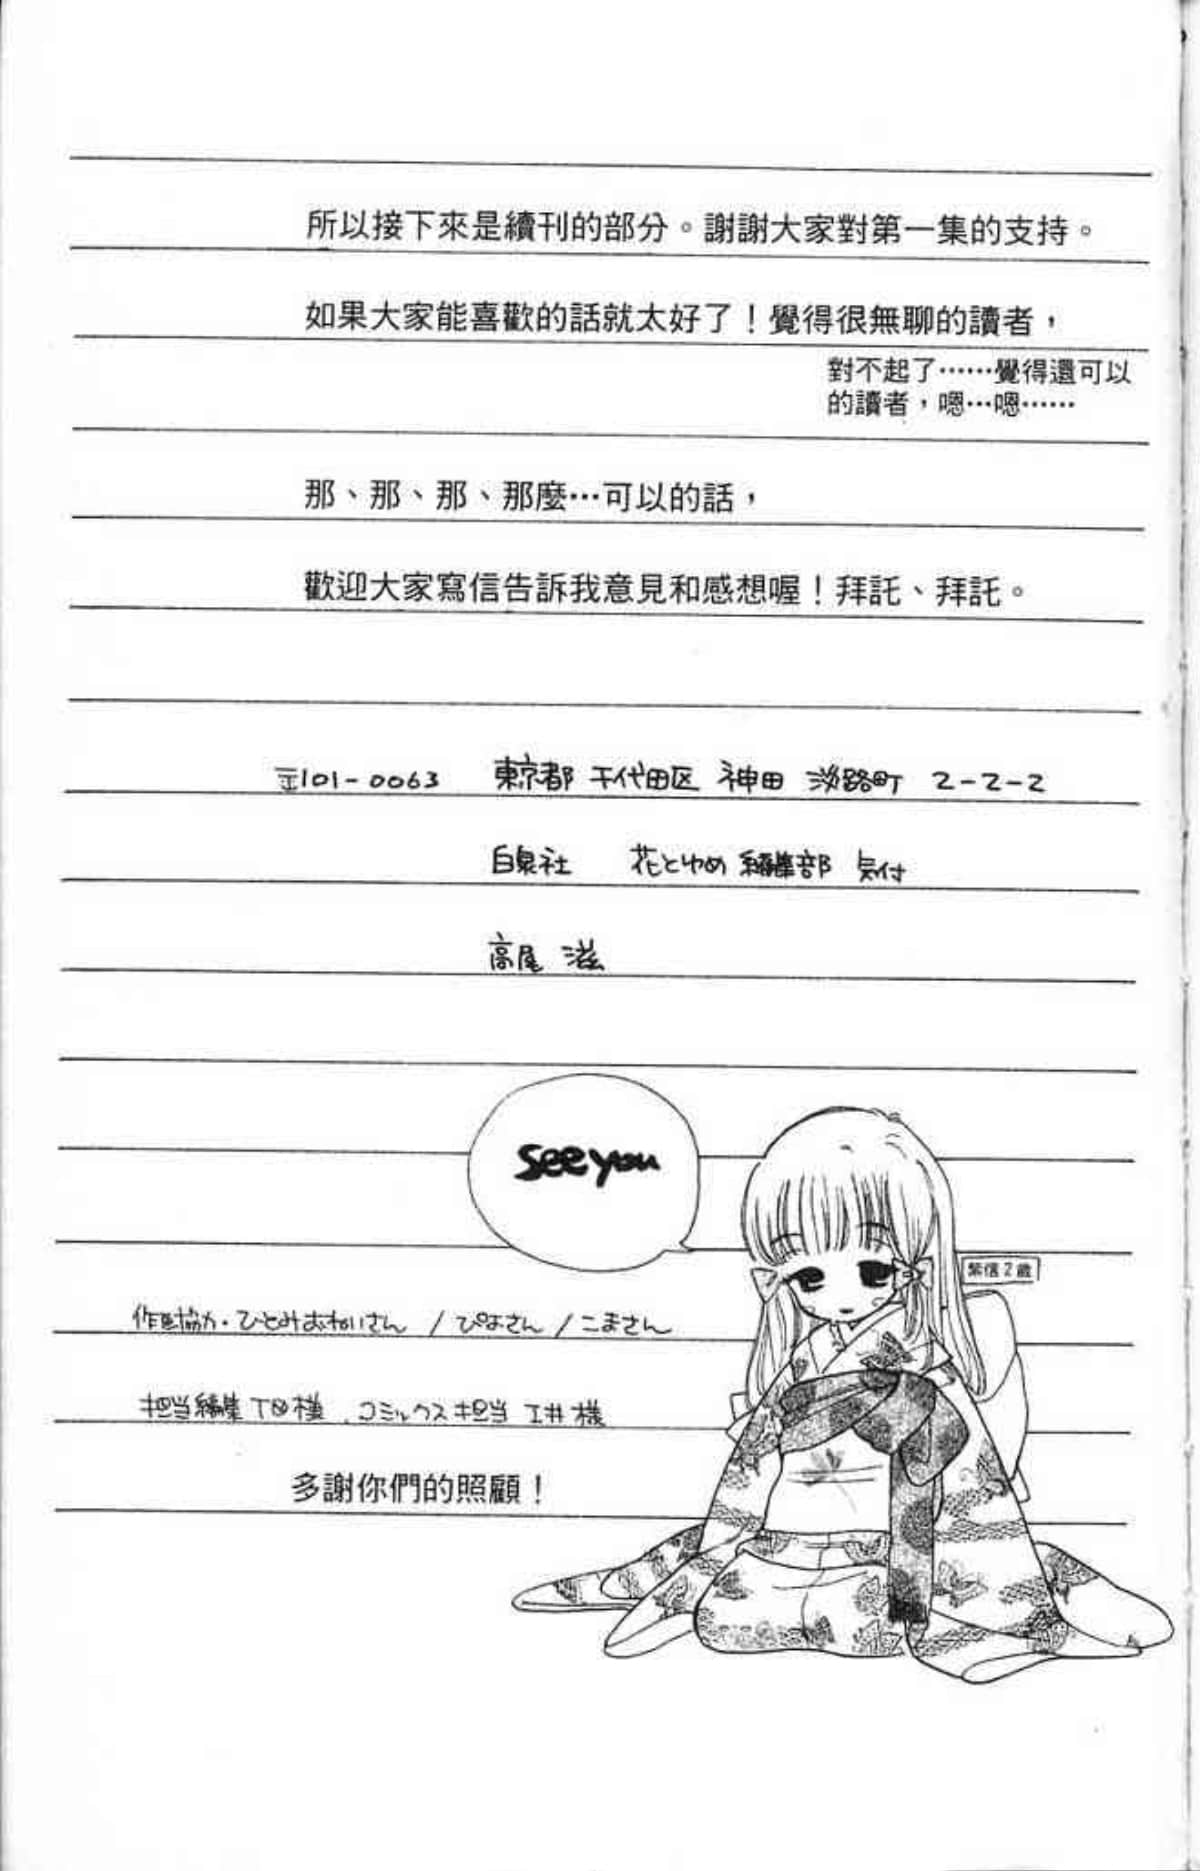 所以接下來是續刊的部分。謝謝大家對第一集的支持。
如果大家能喜歡的話就太好了！覺得很無聊的讀者，
對不起了⋯⋯覺得還可以
的讀者，嗯⋯嗯⋯⋯
那、那、那、那麼⋯可以的話，
歡迎大家寫信告訴我意見和感想喔！拜託、拜託。
〒101-0063 東京都 千代田区 神田 淡路町 2-2-2
白泉社 花とゆめ 編集部 気付
高尾 滋
see you
紫信2歲
作画協力・ひとみおねいさん / ぴよさん / こまさん
担当編集 T田様、コミックス担当 工井様
多謝你們的照顧！